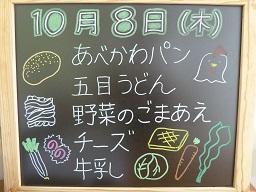 10月8日(木)
あべかわパン
五目うどん
野菜のごまあえ
チーズ
牛乳し